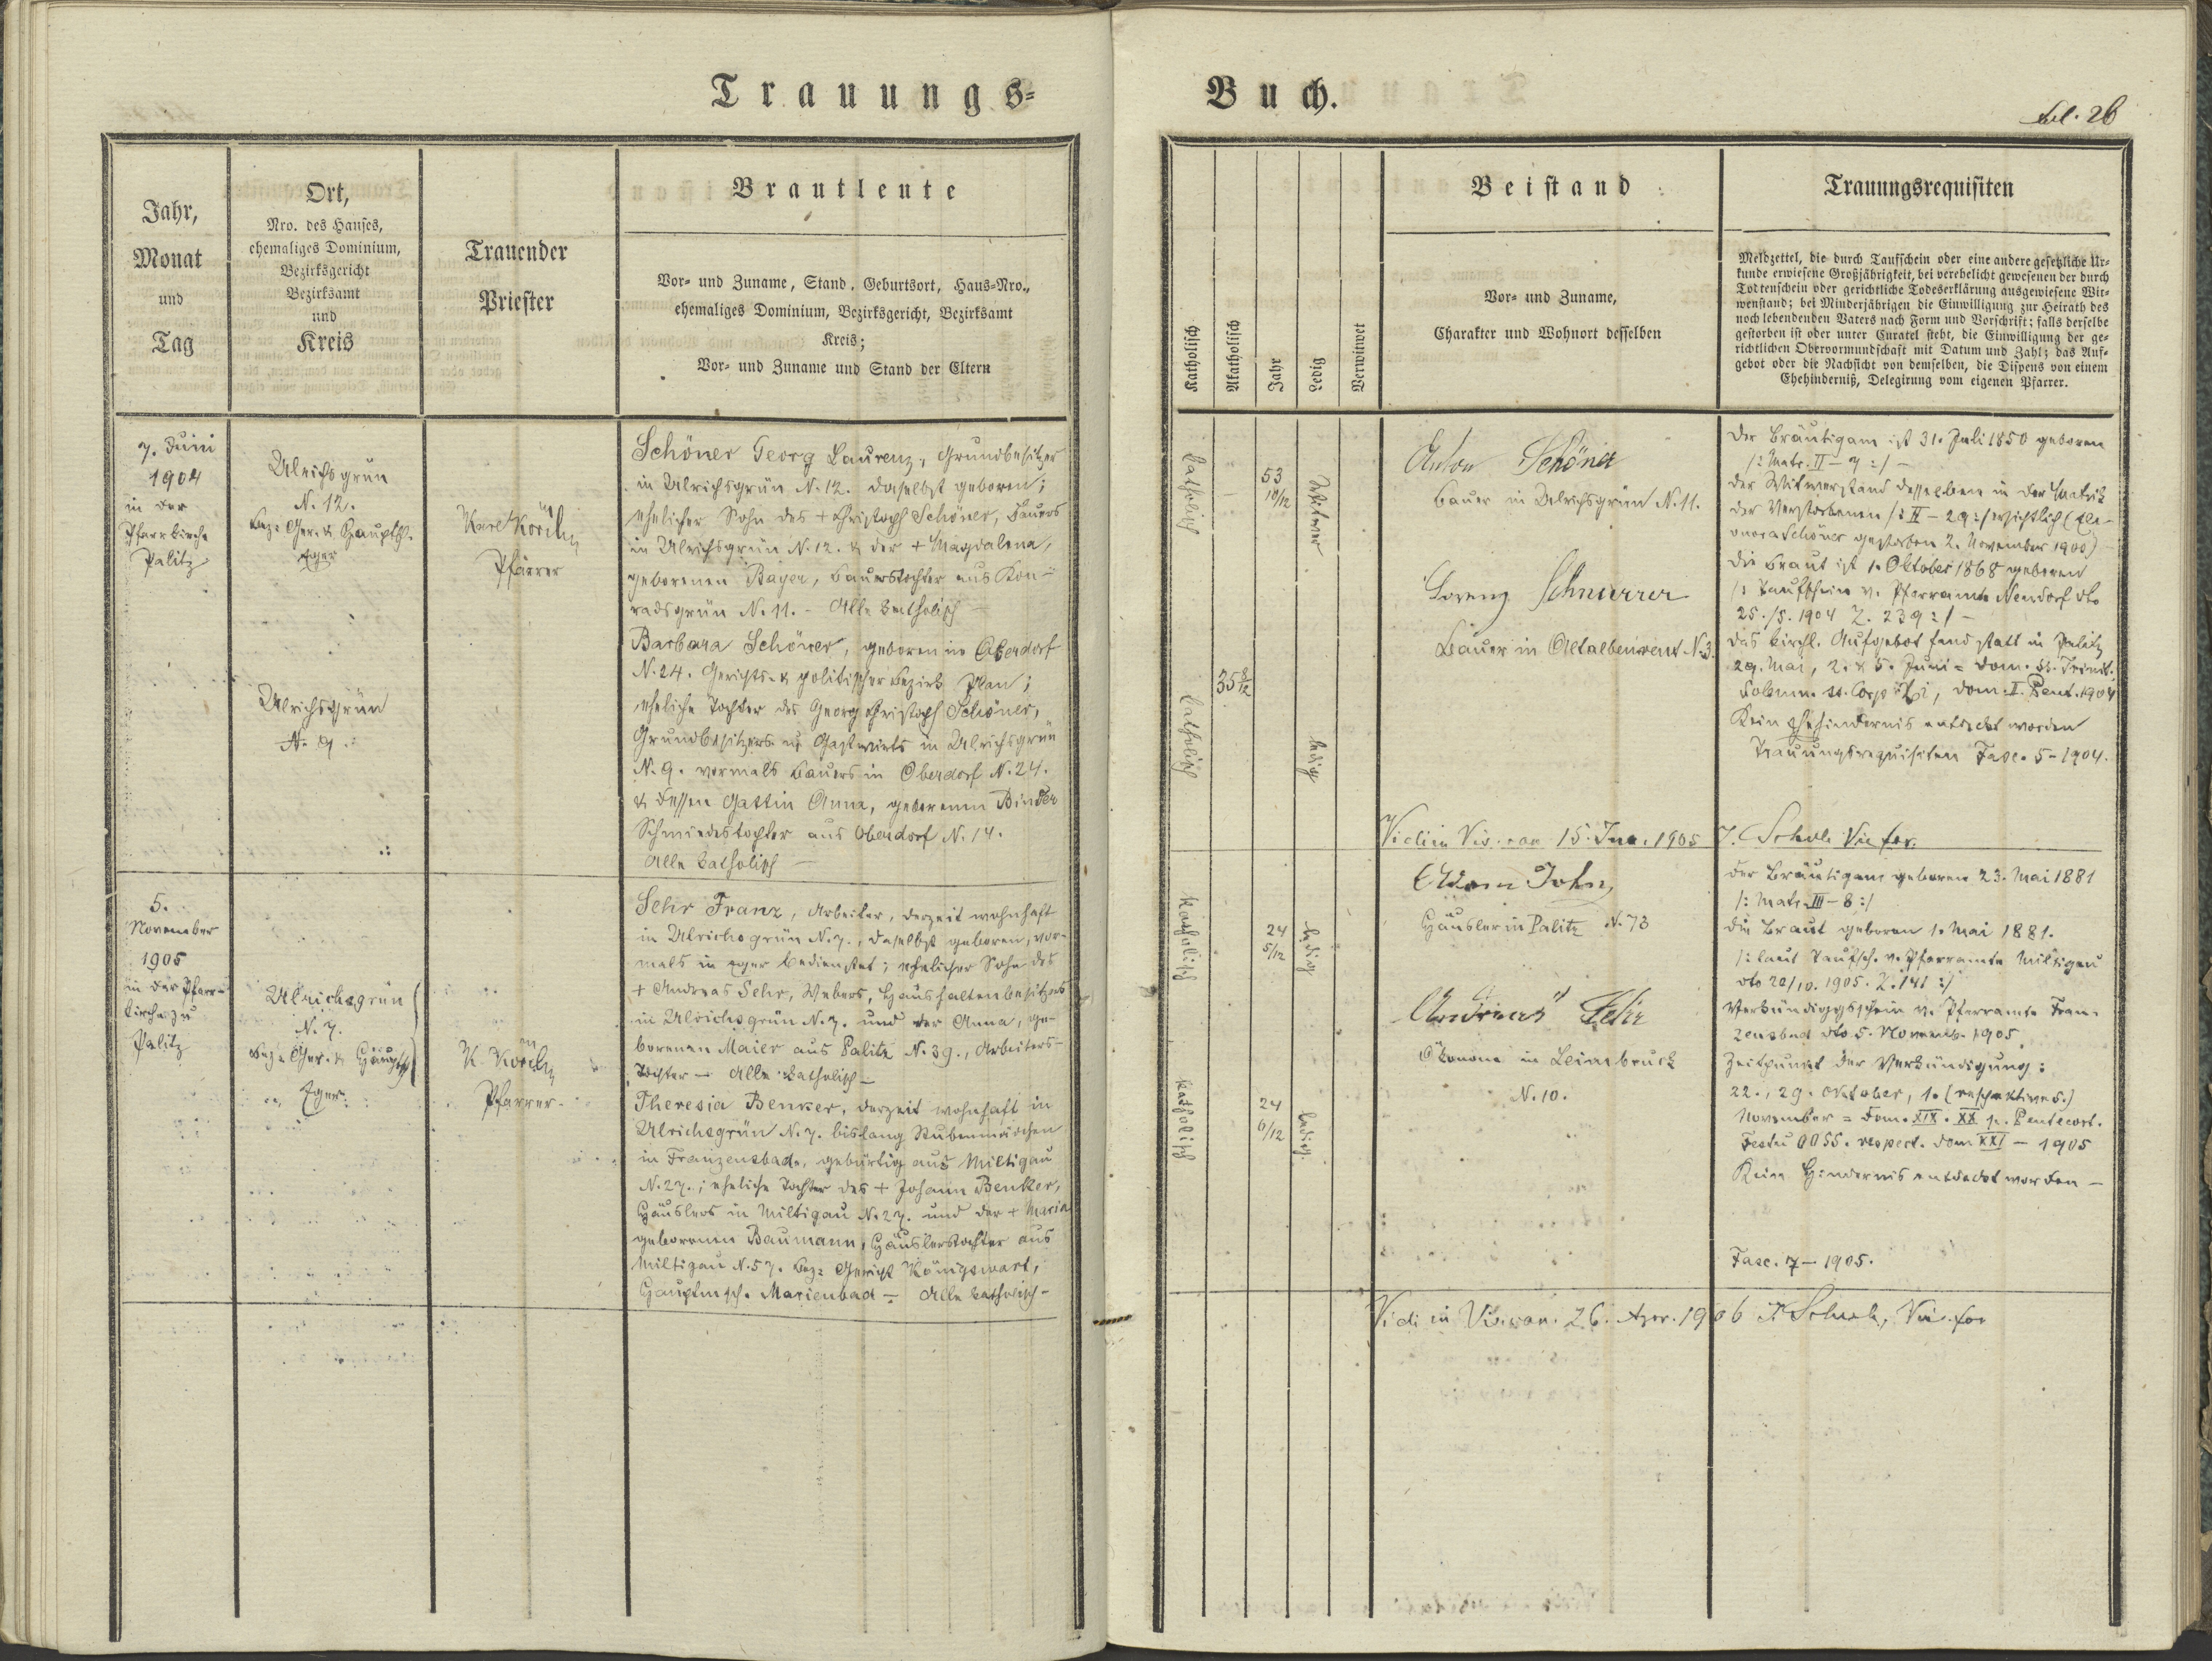 Trauungs=
Jahr,
Monat
und
Tag
Ort,
Nro. des Hauses,
ehemaliges Dominium,
Bezirksgericht
Bezirksamt
und
Kreis
Trauender
Priester
Brautleute
Vor- und Zuname, Stand, Geburtsort, Haus=Nro.,
ehemaliges Dominium, Bezirksgericht, Bezirksamt
Kreis;
Vor- und Zuname und Stand der Eltern
7. Juni
1904
in der
Pfarrkirche
Palitz
Ulrichsgrün
N. 12.
Bez. Ger. & Hauptsch.
Eger
Ulrichsgrün
N. 9.
Karl
Pfarrer
Schöner Georg Laurenz, Grundbesitzer
in Ulrichsgrün N. 12. daselbst geboren;
ehelicher Sohn des + Christoph Schöner, Bauers
in Ulrichsgrün N. 12. & der + Magdalena,
geborenen Bayer, Bauerstochter aus Kon-
radsgrün N. 11. - Alle katholisch -
Barbara Schöner, geboren in Oberdorf
N. 24. Gerichts- & politischer Bezirk Plan;
eheliche Tochter des Georg Christoph Schöner,
Grundbesitzers u. Gastwirts in Ulrichsgrün
N. 9. vormals Bauers in Oberdorf N. 24.
& dessen Gattin Anna, geborenen Binder
Schmiedestochter aus Oberdorf N. 14.
Alle katholisch -
5.
November
1905
in der Pfarr-
kirche zu
Palitz
Ulrichsgrün
N. 7.
Bez. Ger. & Hauptsch.
Eger
K.
Pfarrer
Sehr Franz, Arbeiter, derzeit wohnhaft
in Ulrichsgrün N. 7., daselbst geboren, vor-
mals in Eger bedienstet; ehelicher Sohn des
+ Andreas Sehr, Webers, Haushaltenbesitzers
in Ulrichsgrün N. 7. und der Anna, ge-
borenen Maier aus Palitz N. 39., Arbeiters-
Tochter - Alle katholisch -
Theresia Benker, derzeit wohnhaft in
Ulrichsgrün N. 7. bislang Stubenmädchen
in Franzensbad, gebürtig aus Miltigau
N. 27.; eheliche Tochter des + Johann Benker,
Häuslers in Miltigau N. 27. und der + Maria
geborenen Baumann, Häuslerstochter aus
Miltigau N. 57. Bez. Gericht Königswart,
Hauptmsch. Marienbad - Alle katholisch -
Buch.
fol. 26
Katholisch
Akatholisch
Jahr
Ledig
Verwitwet
Beistand
Vor- und Zuname,
Charakter und Wohnort desselben
Trauungsrequisiten
Meldzettel, die durch Taufschein oder eine andere gesetzliche Ur-
kunde erwiesene Großjährigkeit, bei verehelicht gewesenen der durch
Todtenschein oder gerichtliche Todeserklärung ausgewiesene Wit-
wenstand; bei Minderjährigen die Einwilligung zur Heirath des
noch lebendenden Vaters nach Form und Vorschrift; falls derselbe
gestorben ist oder unter Curatel steht, die Einwilligung der ge-
richtlichen Obervormundschaft mit Datum und Zahl; das Auf-
gebot oder die Nachsicht von demselben, die Dispens von einem
Ehehinderniß, Delegirung vom eigenen Pfarrer.
katholisch
53
10/12
Witwer
katholisch
35 8/12
ledig
Anton Schöner
Bauer in Ulrichsgrün N. 11.
Lorenz Schnurrer
Bauer in Altalbenreut N. 3.
Der Bräutigam ist 31. Juli 1850 geboren
/: Matr. II - 7 :/ -
Der Witwerstand desselben in der Matrik
der Verstorbenen /: II - 29 :/ ersichtlich (Ele-
onora Schöner gestorben 2. November 1900)
Die Braut ist 1. Oktober 1868 geboren
/: Taufschein v. Pfarramte Neudorf dto
25./5. 1904 Z. 239 :/ -
Das kirchl. Aufgebot fand statt in Palitz
29. Mai, 2. & 5. Juni = Dom. SS. Trinit.
Solemn. ss. Corp. Xti, Dom. II. Pent. 1904
Kein Ehehindernis entdeckt worden
Trauungsrequisiten Fasc. 5 - 1904.
Vidi in Vis. can. 15. 1905
katholisch
24
5/12
ledig
katholisch
24
6/12
ledig
Adam John,
Häusler in Palitz N. 73
Andreas Sehr
Ökonom in Leimbruck
N. 10.
Der Bräutigam geboren 23. Mai 1881
/: Matr. III - 8 :/
Die Braut geboren 1. Mai 1881.
/: laut Taufsch. v. Pfarramte Miltigau
dto 20/10. 1905. Z. 141 :/
Verkündiggsschein v. Pfarramte Fran-
zensbad dto 5. Novemb. 1905.
Zeitpunkt der Verkündigung:
22., 29. Oktober, 1. (respektive 5.)
November = Dom. XIX. XX p. Pentecost.
Festu OOSS. respect. Dom XXI - 1905
Kein Hindernis entdeckt worden -
Fasc. 7 - 1905.
Vidi in Vis. can. 26. Apr. 1906